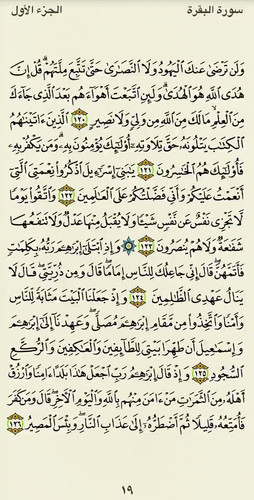 سورة البقرة الجزء الأول
وَلَن تَرْضَىٰ عَنكَ ٱلْيَهُودُ وَلَا ٱلنَّصَٰرَىٰ حَتَّىٰ تَتَّبِعَ مِلَّتَهُمْ ۗ قُلْ إِنَّ
هُدَى ٱللَّهِ هُوَ ٱلْهُدَىٰ ۗ وَلَئِنِ ٱتَّبَعْتَ أَهْوَآءَهُم بَعْدَ ٱلَّذِى جَآءَكَ
مِنَ ٱلْعِلْمِ ۙ مَا لَكَ مِنَ ٱللَّهِ مِن وَلِىٍّ وَلَا نَصِيرٍ ١٢٠ ٱلَّذِينَ ءَاتَيْنَٰهُمُ
ٱلْكِتَٰبَ يَتْلُونَهُۥ حَقَّ تِلَاوَتِهِۦٓ أُو۟لَٰٓئِكَ يُؤْمِنُونَ بِهِۦ ۗ وَمَن يَكْفُرْ بِهِۦ
فَأُو۟لَٰٓئِكَ هُمُ ٱلْخَٰسِرُونَ ١٢١ يَٰبَنِىٓ إِسْرَٰٓءِيلَ ٱذْكُرُوا۟ نِعْمَتِىَ ٱلَّتِىٓ
أَنْعَمْتُ عَلَيْكُمْ وَأَنِّى فَضَّلْتُكُمْ عَلَى ٱلْعَٰلَمِينَ ١٢٢ وَٱتَّقُوا۟ يَوْمًا
لَّا تَجْزِى نَفْسٌ عَن نَّفْسٍ شَيْـًٔا وَلَا يُقْبَلُ مِنْهَا عَدْلٌ وَلَا تَنفَعُهَا
شَفَٰعَةٌ وَلَا هُمْ يُنصَرُونَ ١٢٣ ۞ وَإِذِ ٱبْتَلَىٰٓ إِبْرَٰهِـۧمَ رَبُّهُۥ بِكَلِمَٰتٍ
فَأَتَمَّهُنَّ ۖ قَالَ إِنِّى جَاعِلُكَ لِلنَّاسِ إِمَامًا ۖ قَالَ وَمِن ذُرِّيَّتِى ۖ قَالَ لَا
يَنَالُ عَهْدِى ٱلظَّٰلِمِينَ ١٢٤ وَإِذْ جَعَلْنَا ٱلْبَيْتَ مَثَابَةً لِّلنَّاسِ
وَأَمْنًا وَٱتَّخِذُوا۟ مِن مَّقَامِ إِبْرَٰهِـۧمَ مُصَلًّى ۖ وَعَهِدْنَآ إِلَىٰٓ إِبْرَٰهِـۧمَ
وَإِسْمَٰعِيلَ أَن طَهِّرَا بَيْتِىَ لِلطَّآئِفِينَ وَٱلْعَٰكِفِينَ وَٱلرُّكَّعِ
ٱلسُّجُودِ ١٢٥ وَإِذْ قَالَ إِبْرَٰهِـۧمُ رَبِّ ٱجْعَلْ هَٰذَا بَلَدًا ءَامِنًا وَٱرْزُقْ
أَهْلَهُۥ مِنَ ٱلثَّمَرَٰتِ مَنْ ءَامَنَ مِنْهُم بِٱللَّهِ وَٱلْيَوْمِ ٱلْءَاخِرِ ۖ قَالَ وَمَن كَفَرَ
فَأُمَتِّعُهُۥ قَلِيلًا ثُمَّ أَضْطَرُّهُۥٓ إِلَىٰ عَذَابِ ٱلنَّارِ ۖ وَبِئْسَ ٱلْمَصِيرُ ١٢٦
١٩